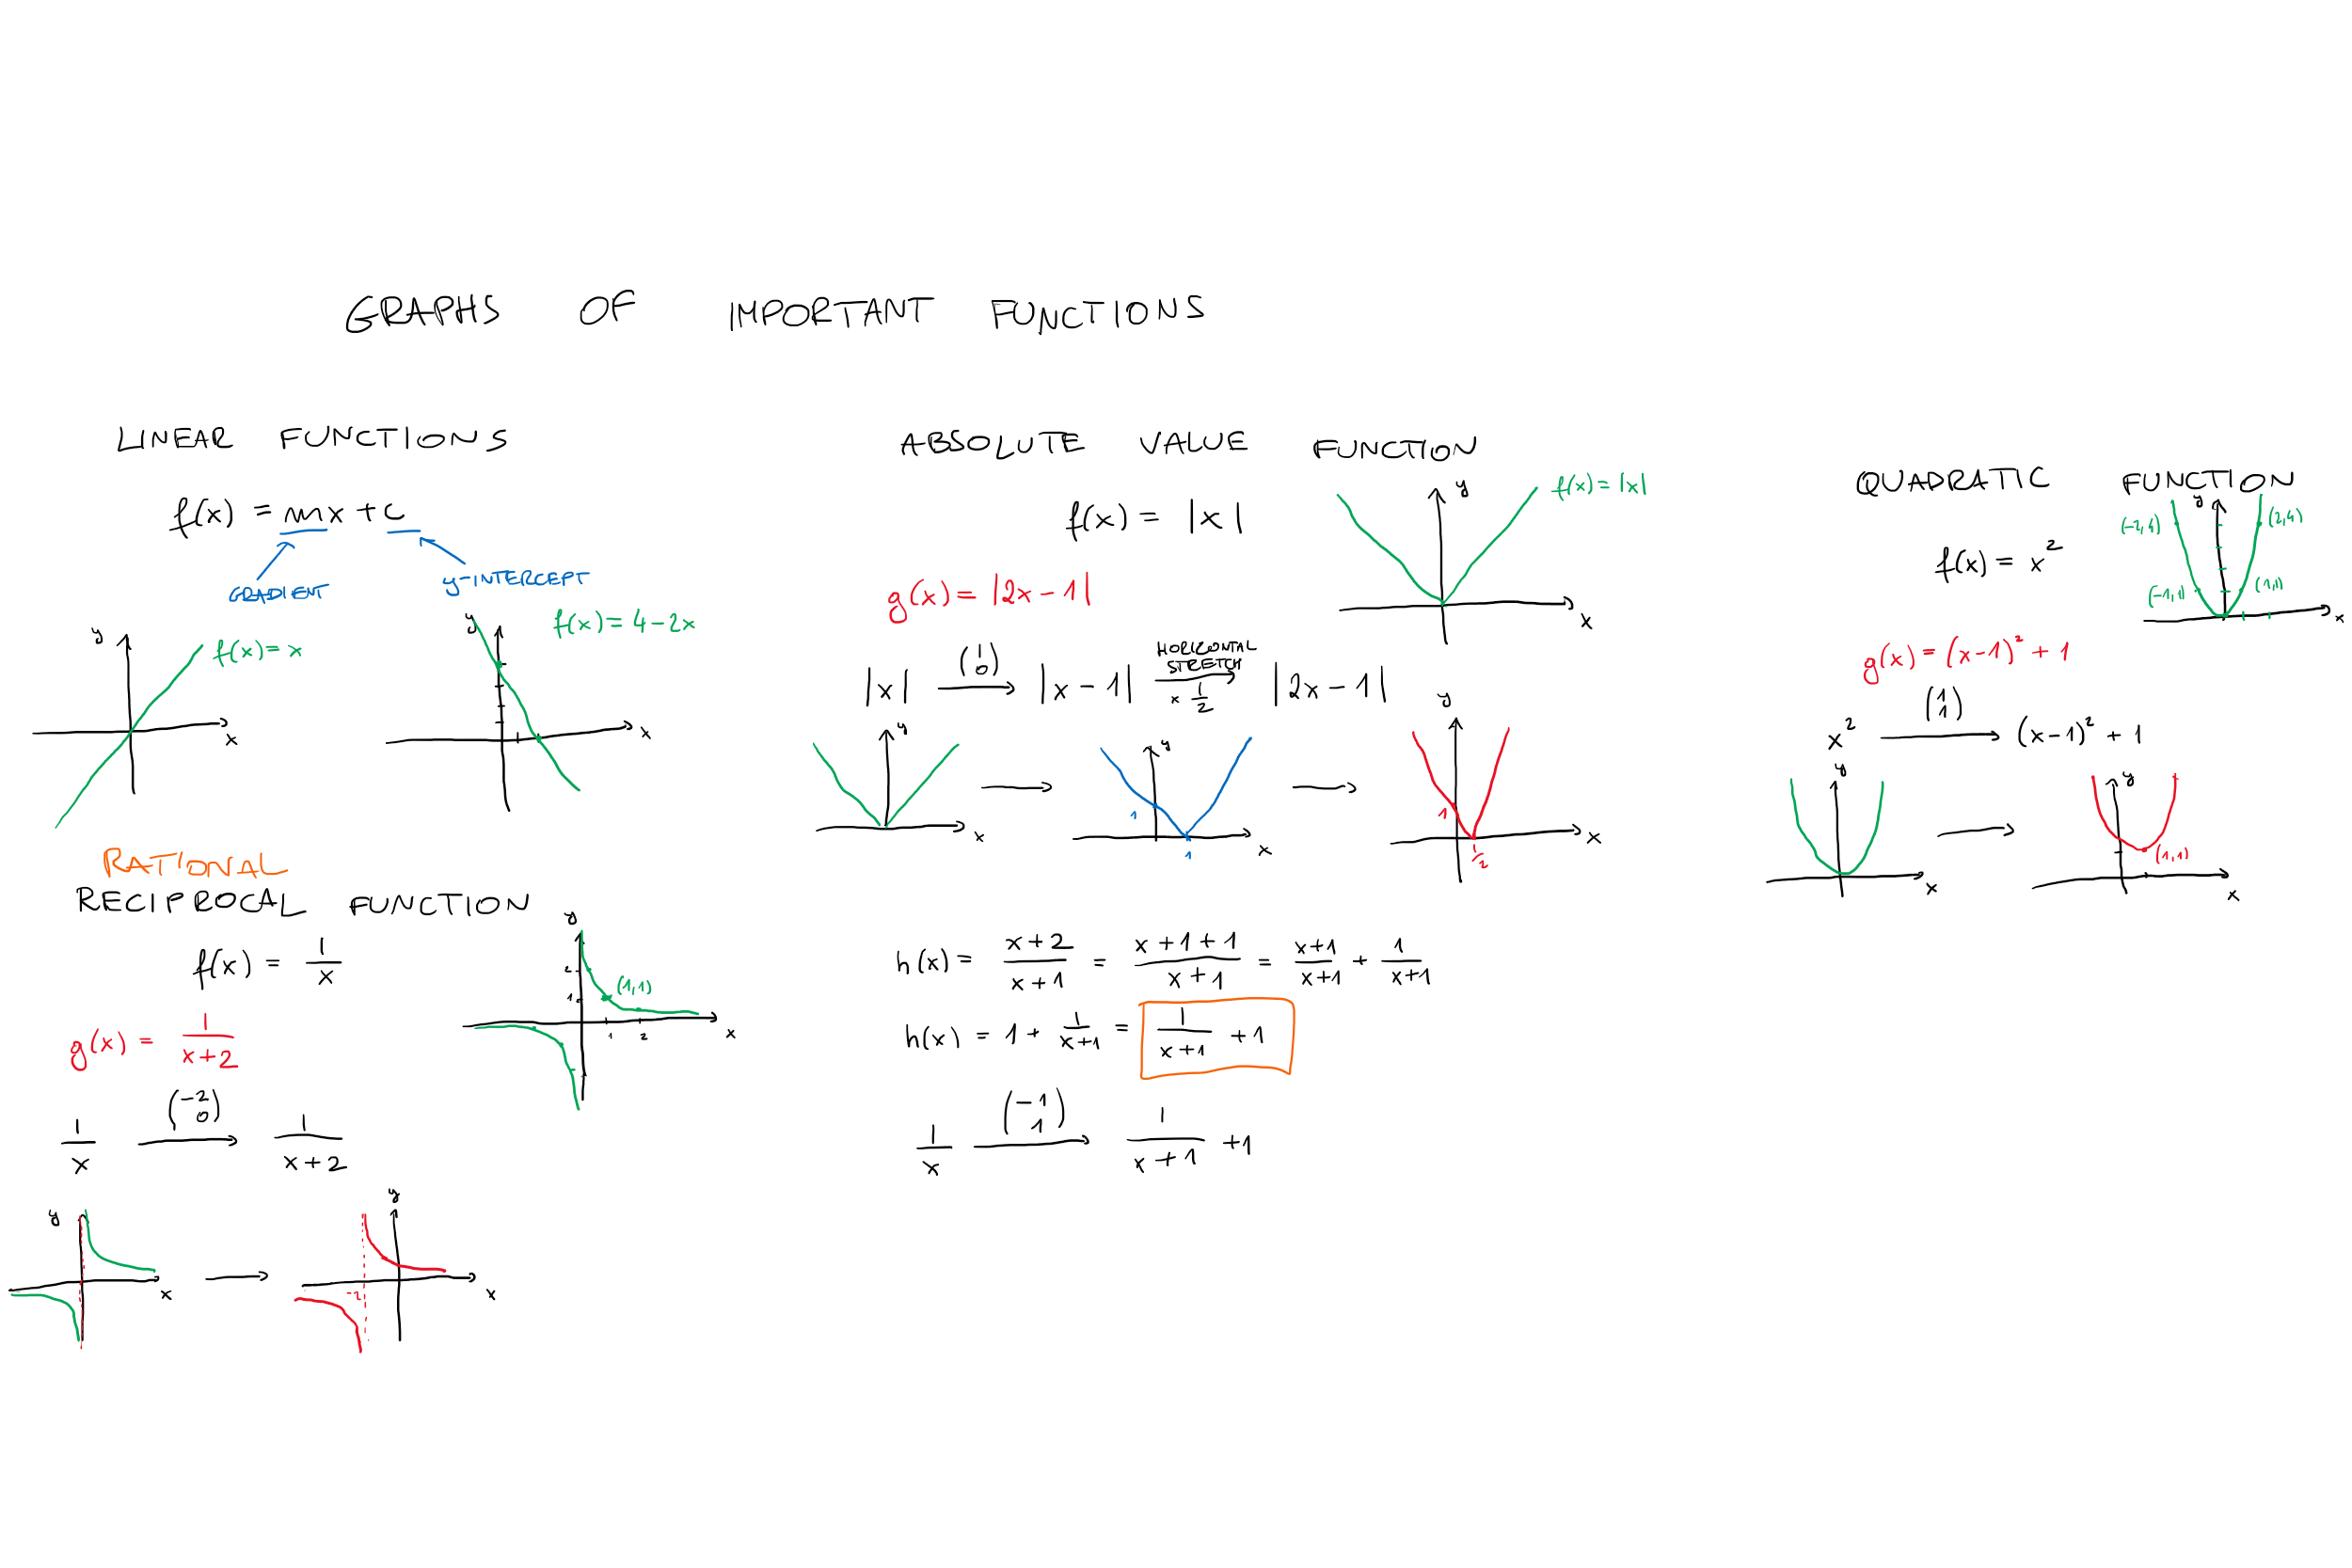 GRAPHS OF IMPORTANT FUNCTIONS
LINEAR FUNCTIONS
f(x) = mx + c
GRADIENT
y-INTERCEPT
y
f(x) = x
x
y
f(x) = 4 - 2x
x
RATIONAL
RECIPROCAL FUNCTION
f(x) = 1/x
y
2
1
(1,1)
1 2
x
g(x) = 1/(x+2)
1/x (-2 0) 1/(x+2)
y
x
y
-2
x
ABSOLUTE VALUE FUNCTION
f(x) = |x|
y
f(x) = |x|
x
g(x) = |2x - 1|
|x| (1 0) |x - 1| HORIZONTAL STRETCH x 1/2 |2x - 1|
y
x
y
1
1
x
y
1
1/2
x
h(x) = (x+2)/(x+1) = (x+1+1)/(x+1) = (x+1)/(x+1) + 1/(x+1)
h(x) = 1 + 1/(x+1) = 1/(x+1) + 1
1/x (-1 1) 1/(x+1) + 1
QUADRATIC FUNCTION
f(x) = x²
y
(-2,4)
(2,4)
(-1,1)
(1,1)
x
g(x) = (x-1)² + 1
x² (1 1) (x-1)² + 1
y
x
y
(1,1)
x